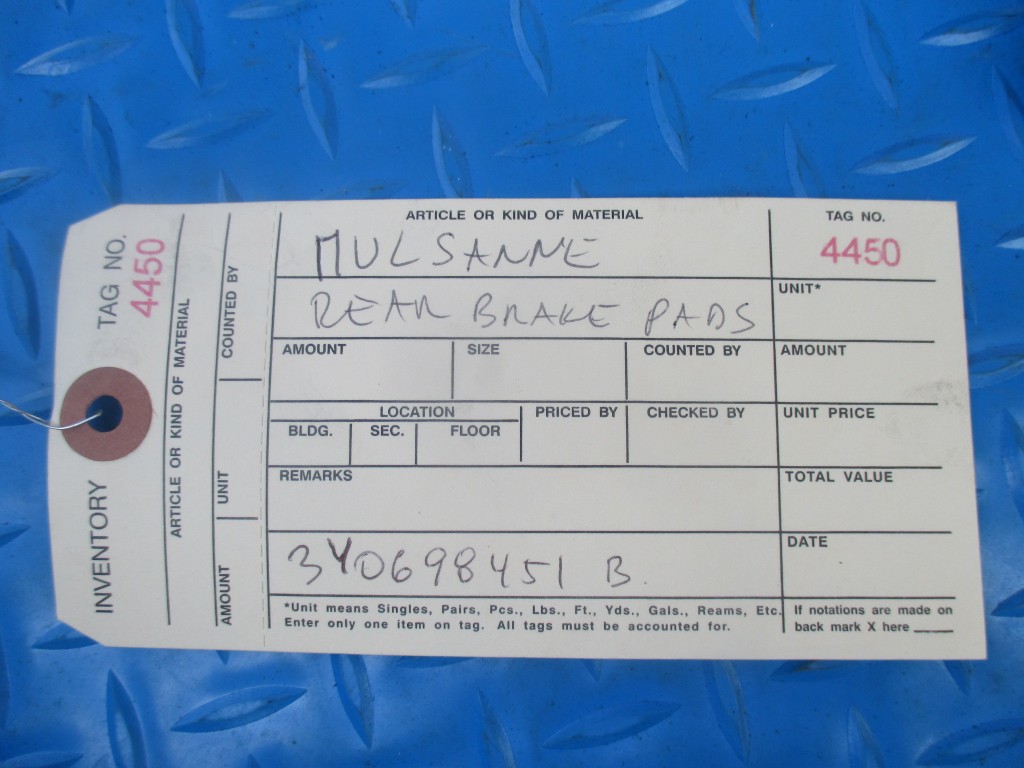 TAG NO.
4450
INVENTORY
ARTICLE OR KIND OF MATERIAL
COUNTED BY
UNIT
AMOUNT
ARTICLE OR KIND OF MATERIAL
MULSANNE
TAG NO.
4450
REAR BRAKE PADS
UNIT*
AMOUNT SIZE COUNTED BY AMOUNT
LOCATION PRICED BY CHECKED BY UNIT PRICE
BLDG. SEC. FLOOR
REMARKS TOTAL VALUE
3Y0698451 B.
DATE
*Unit means Singles, Pairs, Pcs., Lbs., Ft., Yds., Gals., Reams, Etc.
Enter only one item on tag. All tags must be accounted for.
If notations are made on
back mark X here